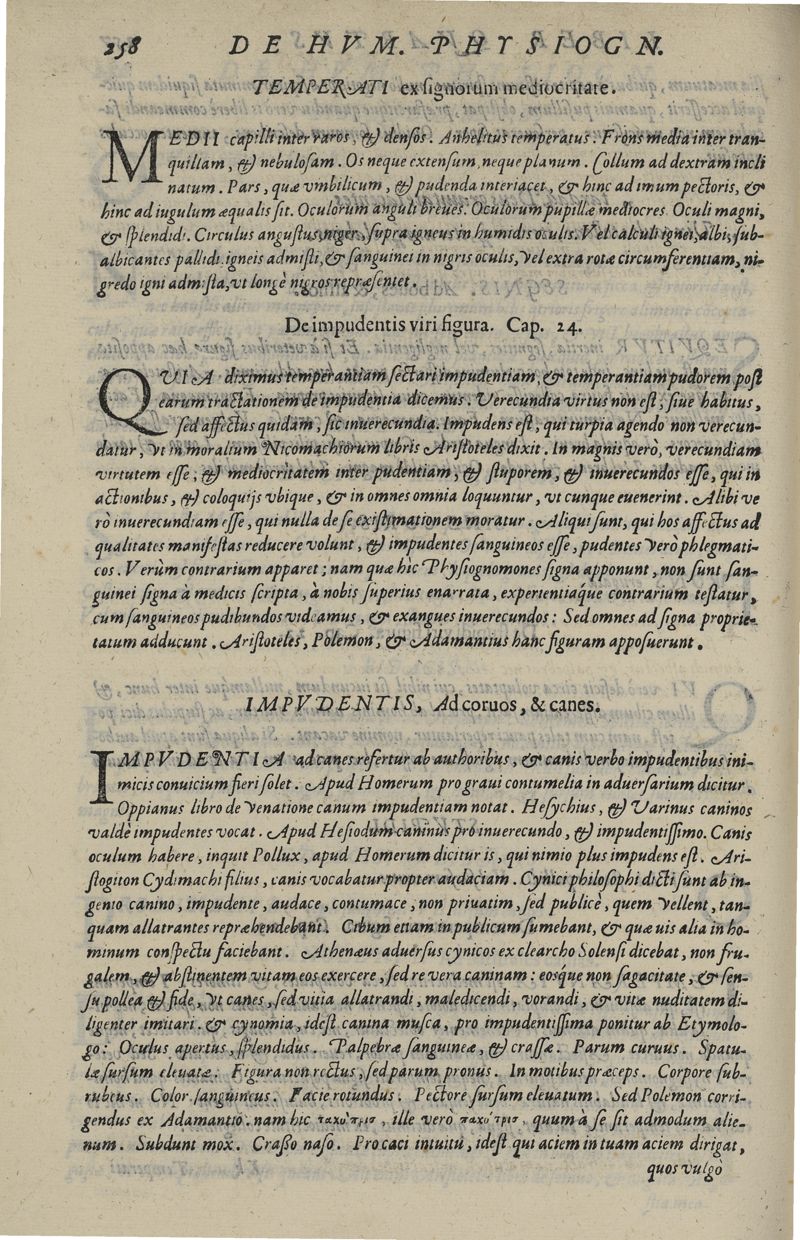 258 DE HVM. PHYSIOGN.
TEMPERATI ex signorum mediocritate.
MEDII capilli inter raros, & densos. Anhelitus temperatus. Frons media inter tran-
quillam, & nebulosam. Os neque extensum, neque planum. Collum ad dextram incli
natum. Pars, quæ vmbilicum, & pudenda interiacet, & hinc ad imum pectoris, &
hinc ad iugulum æqualis sit. Oculorum anguli breues. Oculorum pupillæ mediocres Oculi magni,
& splendidi. Circulus angustus, niger, supra igneus in humidis oculis. Vel calculi ignei, albi, sub-
albicantes pallidi, igneis admisti, & sanguinei in nigris oculis, vel extra rotæ circumferentiam, ni-
gredo igni admista, vt longè nigros repræsentet.
De impudentis viri figura. Cap. 24.
QVIA diximus temperantiam sectari impudentiam, & temperantiam pudorem post
earum tractationem de impudentia dicemus. Verecundia virtus non est, siue habitus,
sed affectus quidam, sic inuerecundia. Impudens est, qui turpia agendo non verecun-
datur, vt in moralium Nicomachiorum libris Aristoteles dixit. In magnis verò, verecundiam
virtutem esse, & mediocritatem inter pudentiam, & stuporem, & inuerecundos esse, qui in
actionibus, & coloquijs vbique, & in omnes omnia loquuntur, vt cunque euenerint. Alibi ve
rò inuerecundiam esse, qui nulla de se existimationem moratur. Aliqui sunt, qui hos affectus ad
qualitates manifestas reducere volunt, & impudentes sanguineos esse, pudentes verò phlegmati-
cos. Verùm contrarium apparet; nam quæ hic Physiognomones signa apponunt, non sunt san-
guinei signa à medicis scripta, à nobis superius enarrata, experientiaq́ue contrarium testatur,
cum sanguineos pudibundos videamus, & exangues inuerecundos: Sed omnes ad signa proprie-
tatum adducunt. Aristoteles, Polemon, & Adamantius hanc figuram apposuerunt.
IMPVDENTIS, Ad coruos, & canes.
IMPVDENTIA ad canes refertur ab authoribus, & canis verbo impudentibus ini-
micis conuicium fieri solet. Apud Homerum pro graui contumelia in aduersarium dicitur.
Oppianus libro de venatione canum impudentiam notat. Hesychius, & Varinus caninos
valdè impudentes vocat. Apud Hesiodum caninus pro inuerecundo, & impudentissimo. Canis
oculum habere, inquit Pollux, apud Homerum dicitur is, qui nimio plus impudens est. Ari-
stogiton Cydimachi filius, canis vocabatur propter audaciam. Cynici philosophi dicti sunt ab in-
genio canino, impudente, audace, contumace, non priuatim, sed publicè, quem vellent, tan-
quam allatrantes repræhendebant. Cibum etiam in publicum sumebant, & quæuis alia in ho-
minum conspectu faciebant. Athenæus aduersus cynicos ex clearcho Solensi dicebat, non fru-
galem, & abstinentem vitam eos exercere, sed re vera caninam: eosque non sagacitate, & sen-
su pollea & fide, vt canes, sed vitia allatrandi, maledicendi, vorandi, & vitæ nuditatem di-
ligenter imitari. & cynomia, idest canina musca, pro impudentissima ponitur ab Etymolo-
go: Oculus apertus, splendidus. Palpebræ sanguineæ, & crassæ. Parum curuus. Spatu-
læ sursum eleuatæ. Figura non rectus, sed parum pronus. In motibus præceps. Corpore sub-
rubeus. Color sanguineus. Facie rotundus. Pectore sursum eleuatum. Sed Polemon corri-
gendus ex Adamantio. nam hic ταχύτρισ, ille verò παχύτρισ, quum à se sit admodum alie-
num. Subdunt mox. Crasso naso. Procaci intuitu, idest qui aciem in tuam aciem dirigat,
quos vulgò